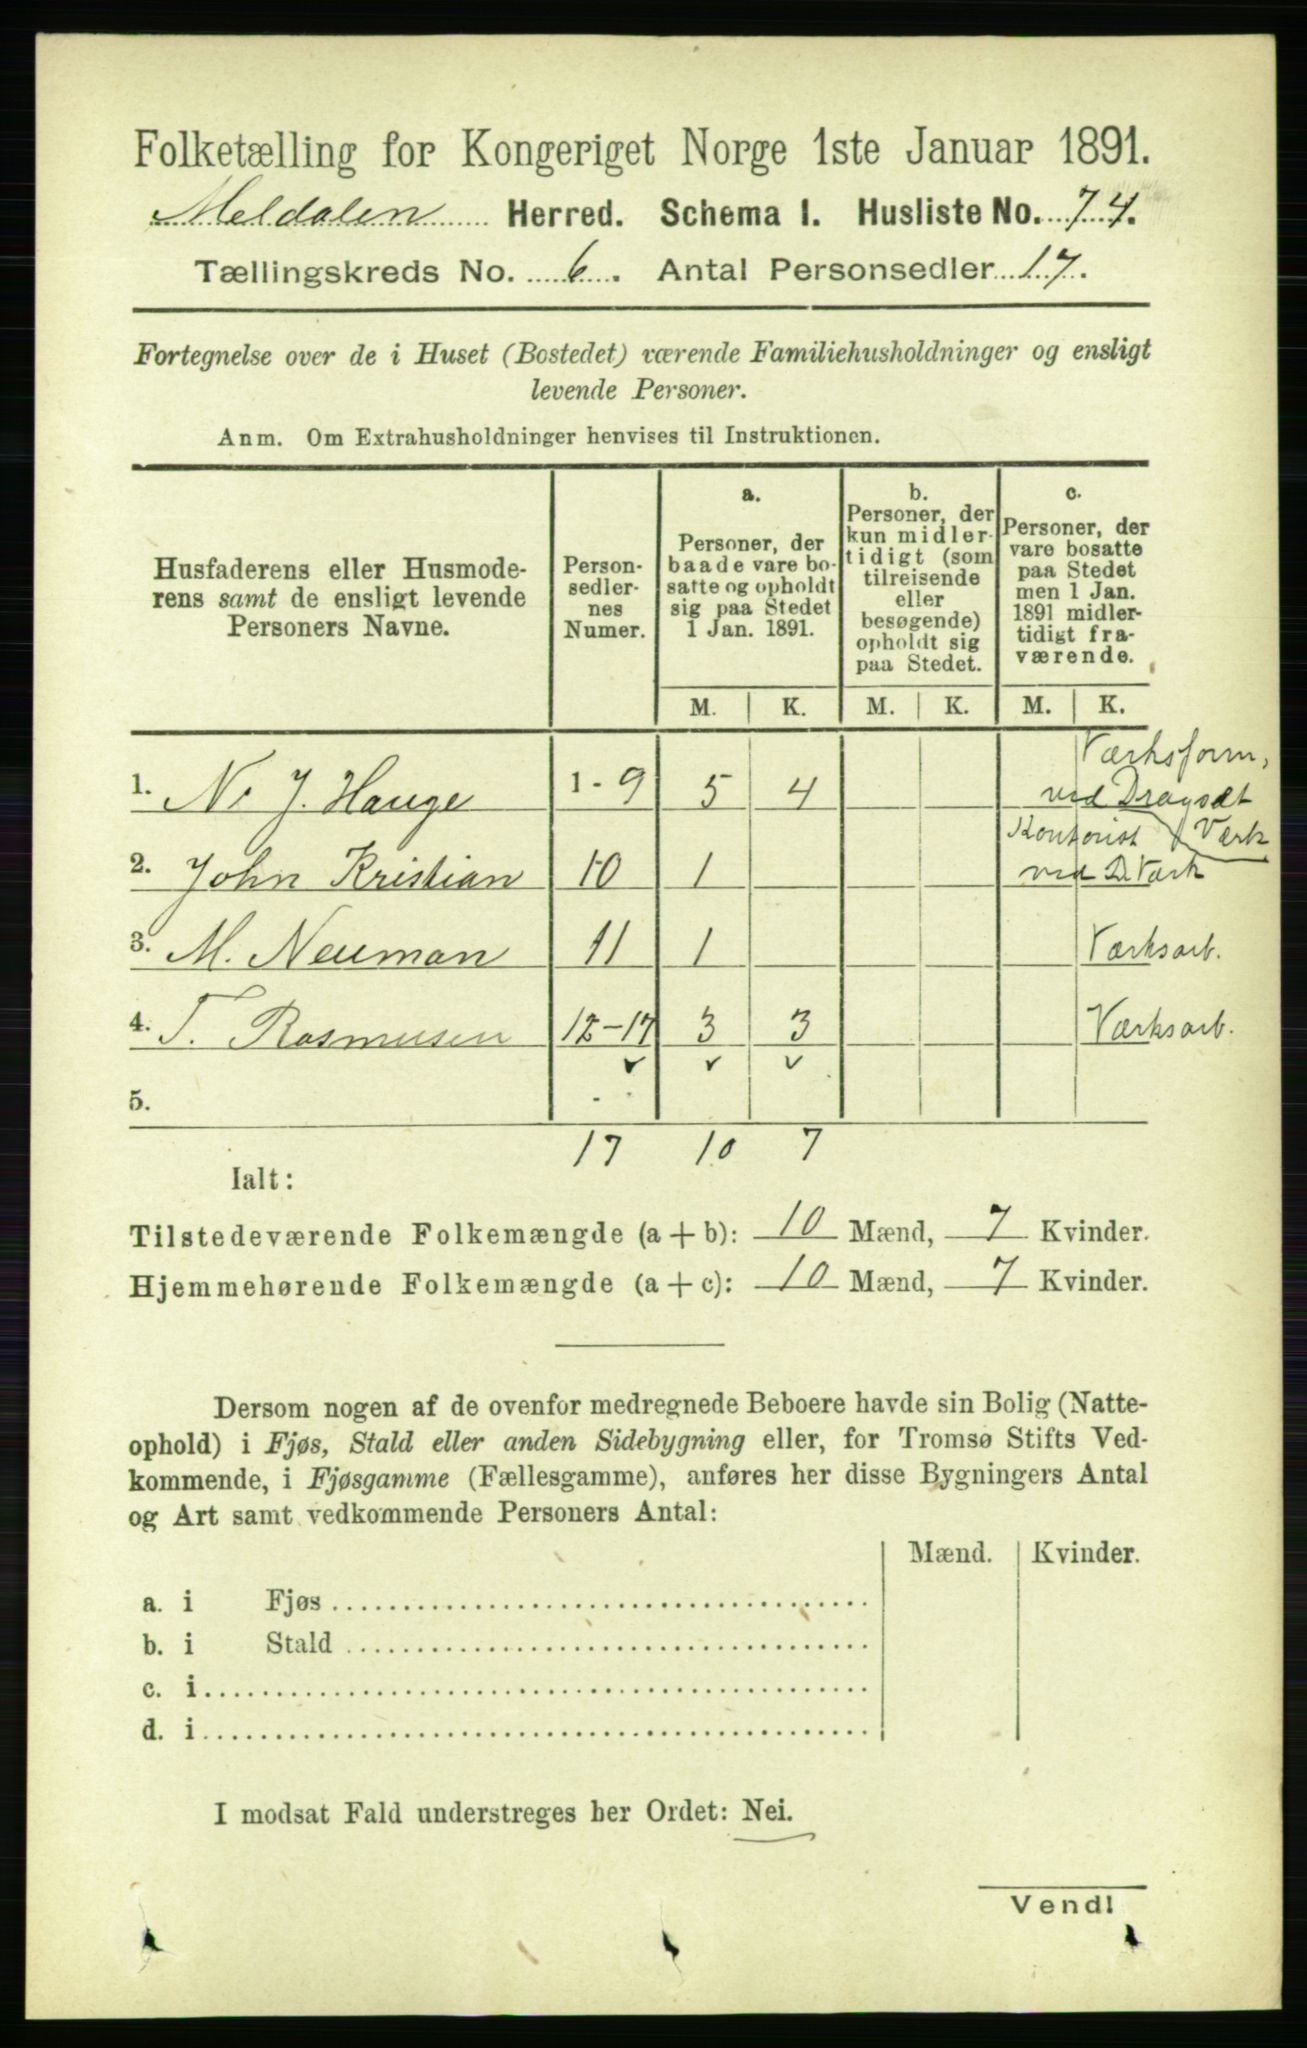 Folketælling for Kongeriget Norge 1ste Januar 1891.
Meldalen Herred. Schema I. Husliste No. 74.
Tællingskreds No. 6. Antal Personsedler 17.
Fortegnelse over de i Huset (Bostedet) værende Familiehusholdninger og ensligt
levende Personer.
Anm. Om Extrahusholdninger henvises til Instruktionen.
Husfaderens eller Husmode-
rens samt de ensligt levende
Personers Navne.
Person-
sedler-
nes
Numer.
a.
Personer, der
baade vare bo-
satte og opholdt
sig paa Stedet
1 Jan. 1891.
b.
Personer, der
kun midler-
tidigt (som
tilreisende
eller
besøgende)
opholdt sig
paa Stedet.
c.
Personer, der
vare bosatte
paa Stedet
men 1 Jan.
1891 midler-
tidigt fra-
værende.
M. K. M. K. M. K.
1. N. J. Hauge 1-9 5 4 Værksform,
ved Dragset
Værk
2. John Kristian 10 1 Kontorist
ved D. Værk
3. M. Neuman 11 1 Værksarb.
4. T. Rasmusen 12-17 3 3 Værksarb.
5.
17 10 7
Ialt:
Tilstedeværende Folkemængde (a + b): 10 Mænd, 7 Kvinder.
Hjemmehørende Folkemængde (a + c): 10 Mænd, 7 Kvinder.
Dersom nogen af de ovenfor medregnede Beboere havde sin Bolig (Natte-
ophold) i Fjøs, Stald eller anden Sidebygning eller, for Tromsø Stifts Ved-
kommende, i Fjøsgamme (Fællesgamme), anføres her disse Bygningers Antal
og Art samt vedkommende Personers Antal:
Mænd. Kvinder.
a. i Fjøs
b. i Stald
c. i
d. i
I modsat Fald understreges her Ordet: Nei.
Vend!